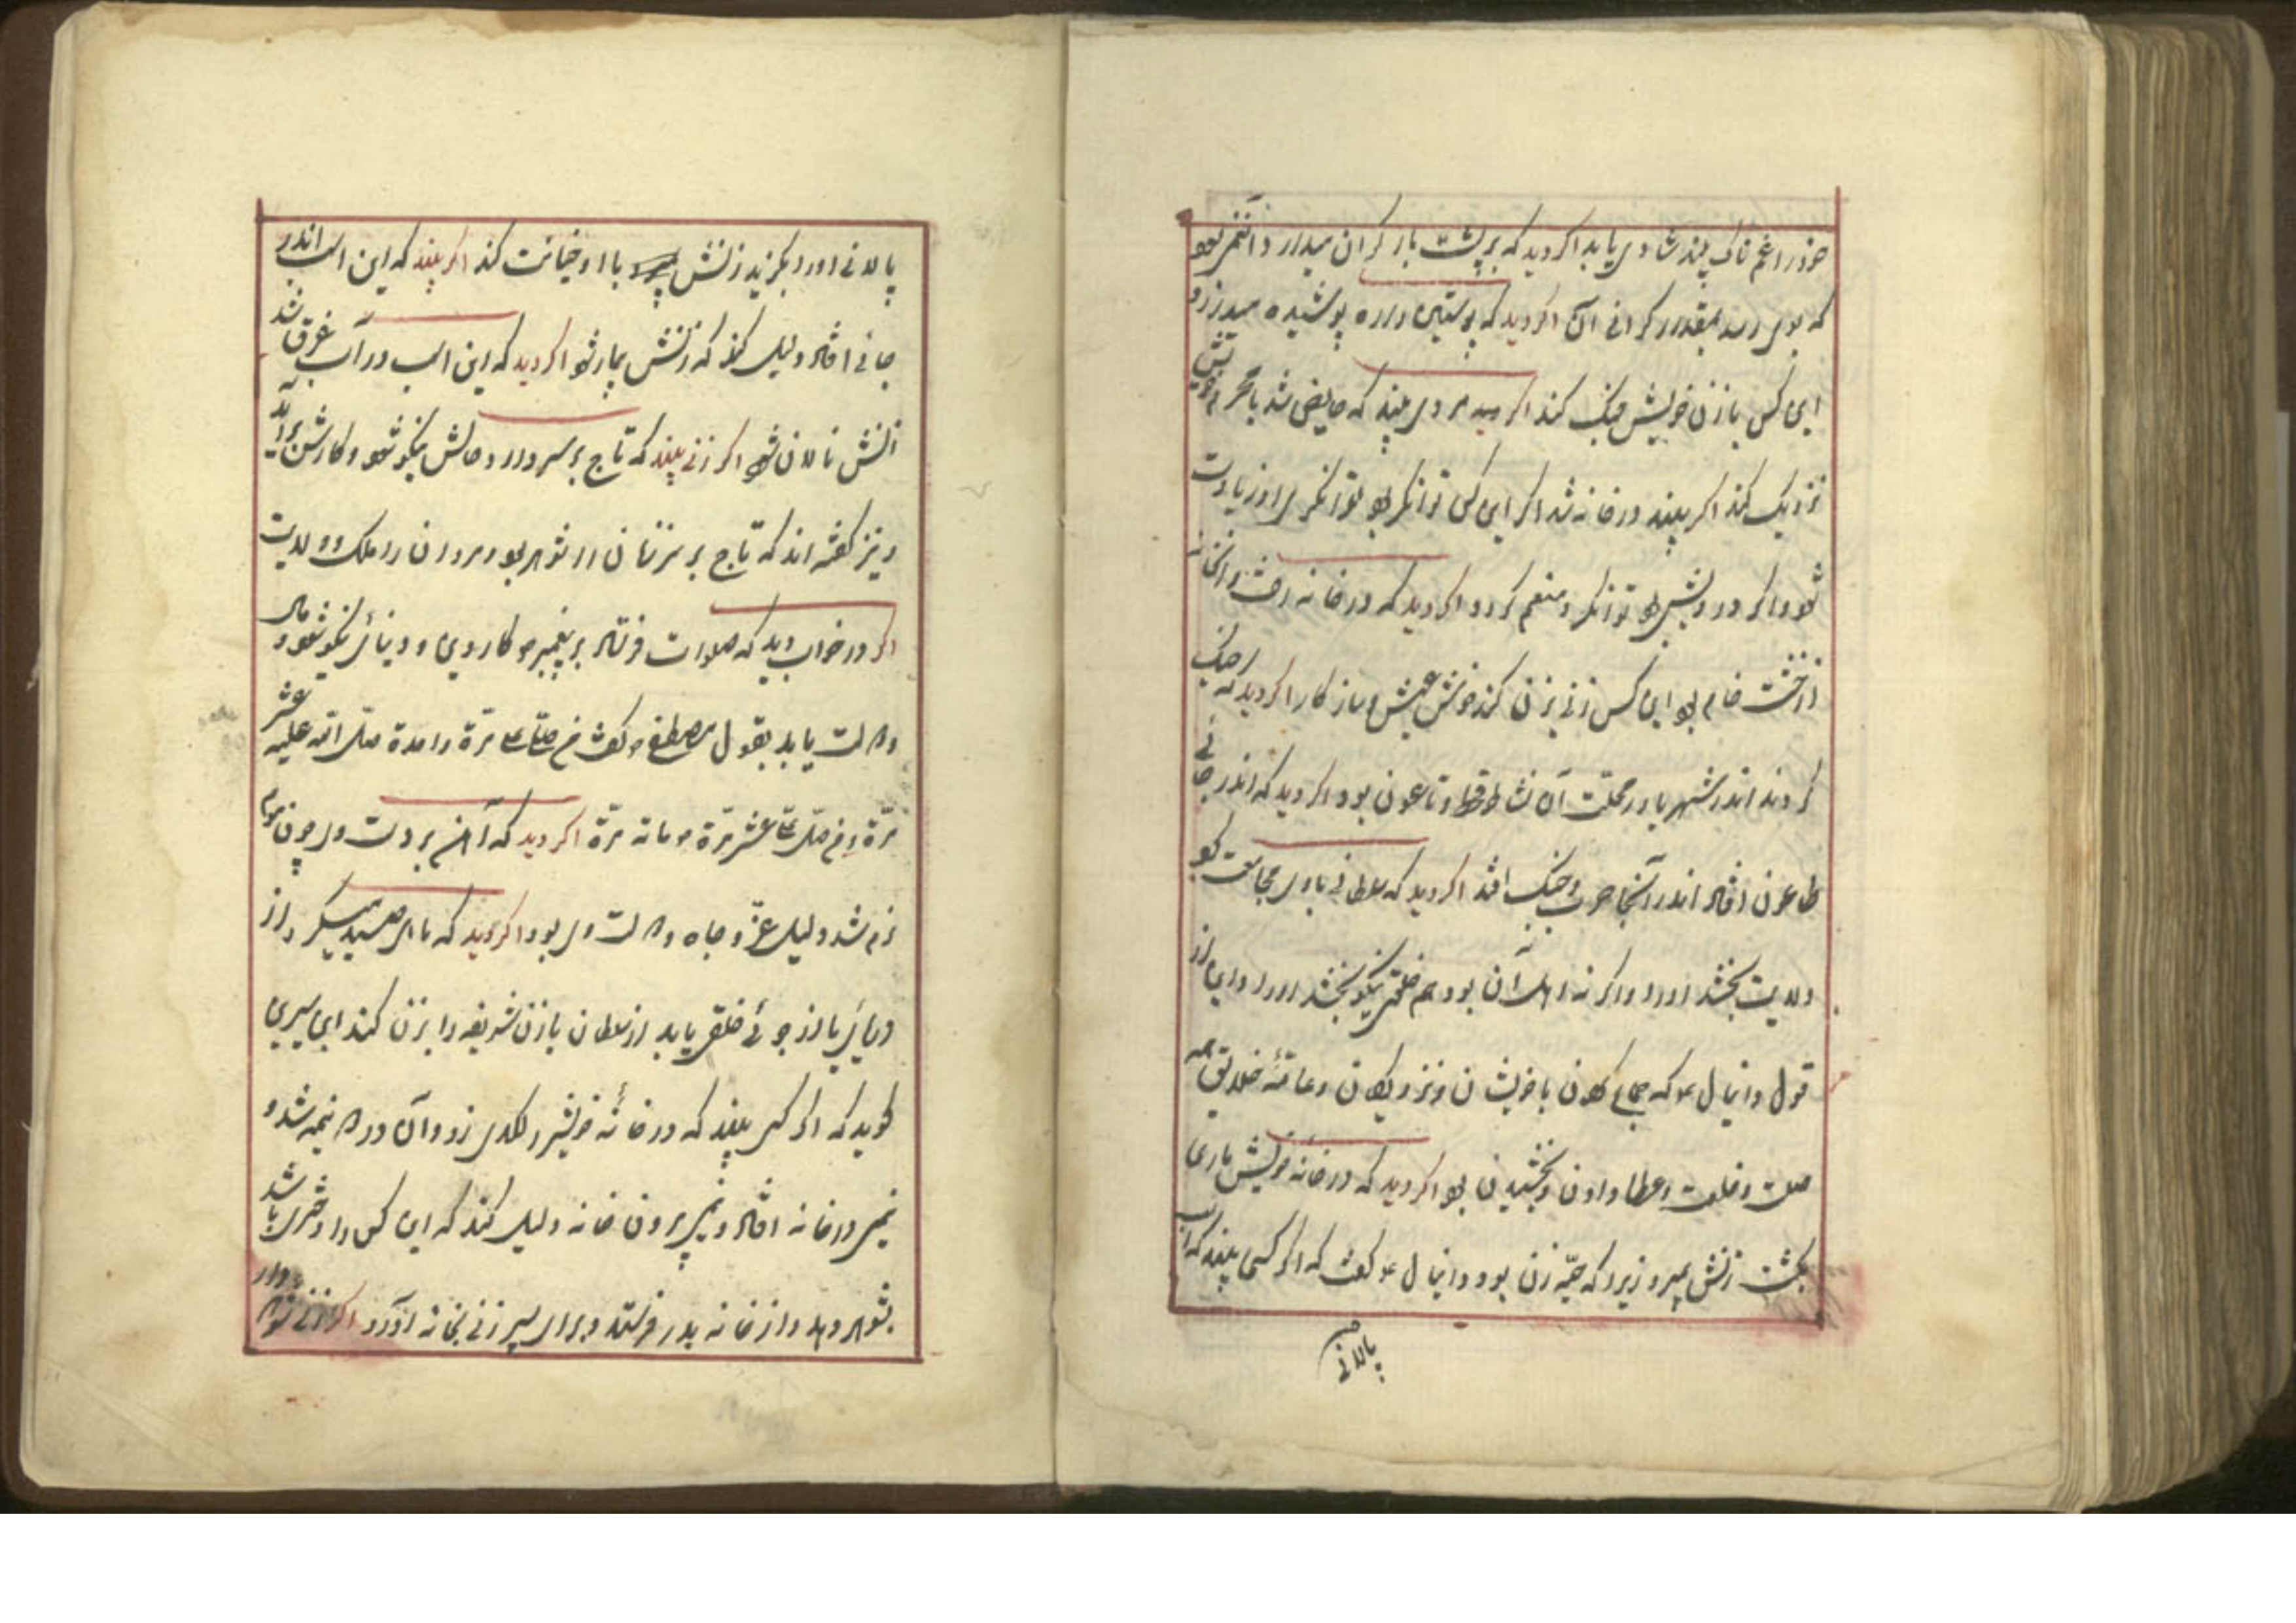 خود را غم ناک بیند شادی یابد اکر دید که بر پشت بار کران میدارد آن غم بود
که بوی رسد بمقدار کرانی آن اکر دید که پوستین دره پوشیده میدرزد
این کس با زن خویش جنک کند اکر مردی بیند که حایض شد با محرم خویش
نزدیک کند اکر بیند در خانه شد اکر این کس توانکر بود توانکری او زیادت
شود و اکر درویش بود توانکر و منعم کردد اکر دید که در خانه رفت و آنخانه
از خشت خام بود این کس زنی بزن کند خوش عیش و ساز کار اکر دید که جنک
کردند اندر شهر یا در محلت آن نشاط قحط و تاعون بود اکر دید که اندر جائی
طاعون افتاد اندر آنجا حرب و جنک افتد اکر دید که سلطانی با وی مجامعت کرد
ولایت بخشد او را و اکر نه اهل آن بود هم خلعتی نیکو بخشد او را و این از
قول دانیال ع که جماع کردن با خویشان و نزدیکان و عامّهٔ خلایق همه
صلت و خلعت و عطا دادن و بخشیدن بود اکر دید که در خانه خویش ماری
بکشت زنش بمیرد زیرا که حیّه زن بود و دانیال ع کفت که اکر کسی بیند که اسب
پالانی
پالانی آورد بکزید زنش با او خیانت کند اکر بیند که این اسب اندر
جائی افتاد دلیل کند که زنش بیمار شود اکر دید که این اسب در آب غرق شد
زنش نالان شود اکر زنی بیند که تاج بر سر دارد حالش نیکو شود و کارش برآید
و نیز کفته اند که تاج بر سر زنان را شوهر بود و مردان را ملک و ولایت
اکر در خواب دید که صلوات فرستاد بر پیغمبر ص کار دینی و دنیائی نیکو شود و مال
و حرمت یابد بقول مصطفی ص کفت من صلّی علیّ مرّة واحدة صلّی الله علیه عشر
مرّة و من صلّی علیّ عشر مرّة مائه مرّة اکر دید که آهن بر دست وی چون موم
نرم شد دلیل عزّ و جاه و حرمت وی بود اکر دید که ماهی صید میکرد از
دریائی یا از جوئی خلقی یابد از سلطان یا زن شریفه را بزن کند ابن سیرین
کوید که اکر کسی بیند که در خانهٔ خویش را لکدی زد و آن در دو نیمه شد و
نیمی در خانه افتاد و نیمی بیرون خانه دلیل کند که این کس را دختری باشد
بشوهر دهد و از خانه بدر فرستد و برای پسر زنی بخانه آورد اکر زنی شوهردار